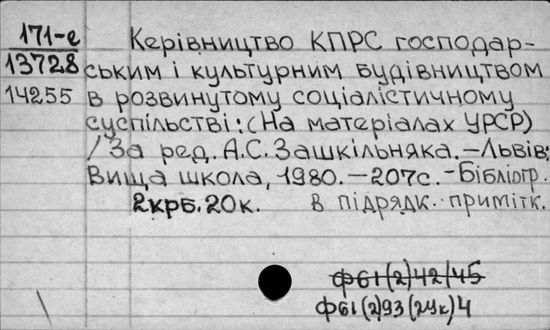 171-е Керівництво КПРС господар-
13728 ським і культурним будівництвом
14255 в розвинутому соціалістичному
суспільстві: (На матеріалах УРСР)
/ За ред. А.С. Зашкільняка. – Львів:
Вища школа, 1980. – 207с. – Бібліогр.
2крб. 20к. в підрядк. примітк.
ф61(2)42/45
ф61(2)93(2Ук)4